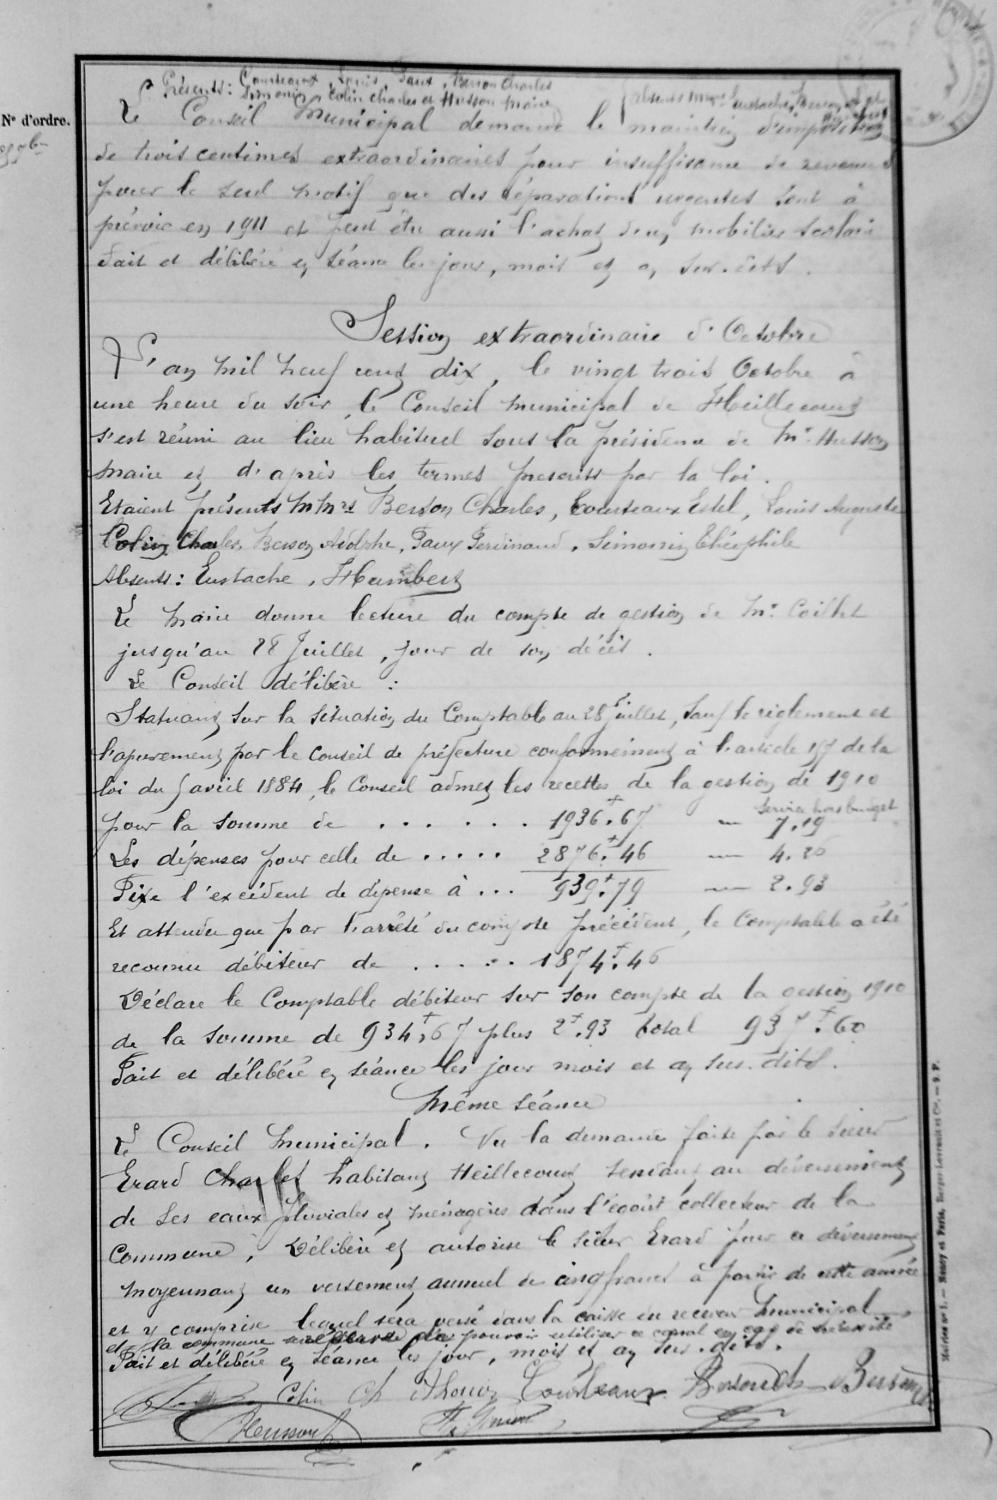 N° d'ordre.
Présents: Courteaux, Louis, Paux, Berson Charles
Simonin, Colin Charles et Husson Maire
absents MM. Eustache, Berson
Le Conseil Municipal demande le maintien d'imposition
de trois centimes extraordinaires pour insuffisance de revenus
pour le seul motif que des réparations urgentes sont à
prévoir en 1911 et peut être aussi l'achat d'un mobilier scolaire
Fait et délibéré en séance les jour, mois et an sus-dits.
Session extraordinaire d'Octobre
L'an mil neuf cent dix, le vingt trois Octobre à
une heure du soir, le Conseil municipal de Heillecourt
s'est réuni au lieu habituel sous la présidence de Mr Husson
Maire et d'après les termes prescrits par la loi.
Etaient présents MMrs Berson Charles, Courteaux Estel, Louis Auguste
Colin Charles, Berson Adolphe, Paux Ferdinand, Simonin Théophile
Absents: Eustache, Humbert
Le Maire donne lecture du compte de gestion de Mr
jusqu'au 28 Juillet, jour de son décès.
Le Conseil délibère :
Statuant sur la situation du Comptable au 28 Juillet, sauf le règlement et
l'apurement par le Conseil de préfecture conformément à l'article 157 de la
loi du 5 avril 1884, le Conseil admet les recettes de la gestion de 1910
Service hors budget
pour la somme de . . . . . . 1936f.67 — 7.19
Les dépenses pour celle de . . . . . 2876f.46 — 4.26
Fixe l'excédent de dépense à . . . 939f.79 — 2.93
Et attendu que par l'arrêté du compte précédent, le Comptable a été
reconnu débiteur de . . . . . 1874f.46
Déclare le Comptable débiteur sur son compte de la gestion 1910
de la somme de 934f,67 plus 2f.93 total 937f.60
Fait et délibéré en séance les jour mois et an sus-dits.
Même séance
Le Conseil Municipal. Vu la demande faite par le sieur
Erard Charles habitant Heillecourt tendant au déversement
de ses eaux pluviales et ménagères dans l'égoût collecteur de la
Commune, Délibère et autorise le sieur Erard pour ce déversement
moyennant un versement annuel de cinq francs à partir de cette année
et y comprise lequel sera versé dans la caisse du receveur Municipal
et la commune se réserve de pouvoir utiliser ce canal en cas de nécessité
Fait et délibéré en séance les jour, mois et an sus-dits.
Colin Ch Courteaux
Husson